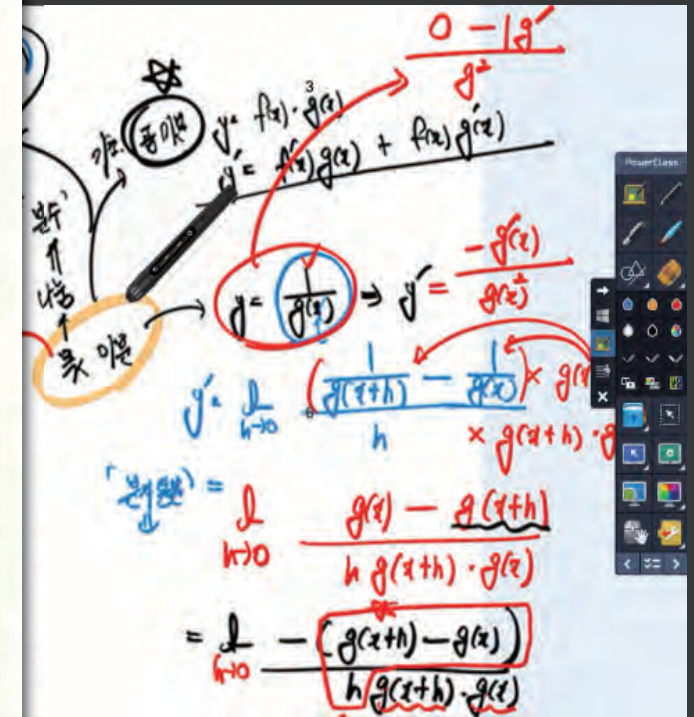 0 - 1g'
g²
y = f(x)·g(x)
3
y' = f'(x)g(x) + f(x)g'(x)
곱미분
기초
분수
나눗
몫 미분
y = 1/g(x) → y' = -g'(x)/g(x)²
y' = lim h→0 (1/g(x+h) - 1/g(x)) × g(x
6
h × g(x+h)·g
=
lim h→0 g(x) - g(x+h)
h g(x+h)·g(x)
= lim h→0 -(g(x+h) - g(x))
h g(x+h)·g(x)
PowerClass